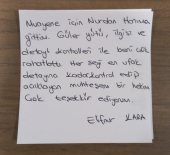 Muayene için Nurdan Hanıma
gittim. Güler yüzü, ilgisi ve
detaylı kontrolleri ile beni çok
rahatlattı. Her şeyi en ufak
detayına kadar kontrol edip
açıklayan muhteşem bir hekim
Çok teşekkür ediyorum.
Elfnur KARA